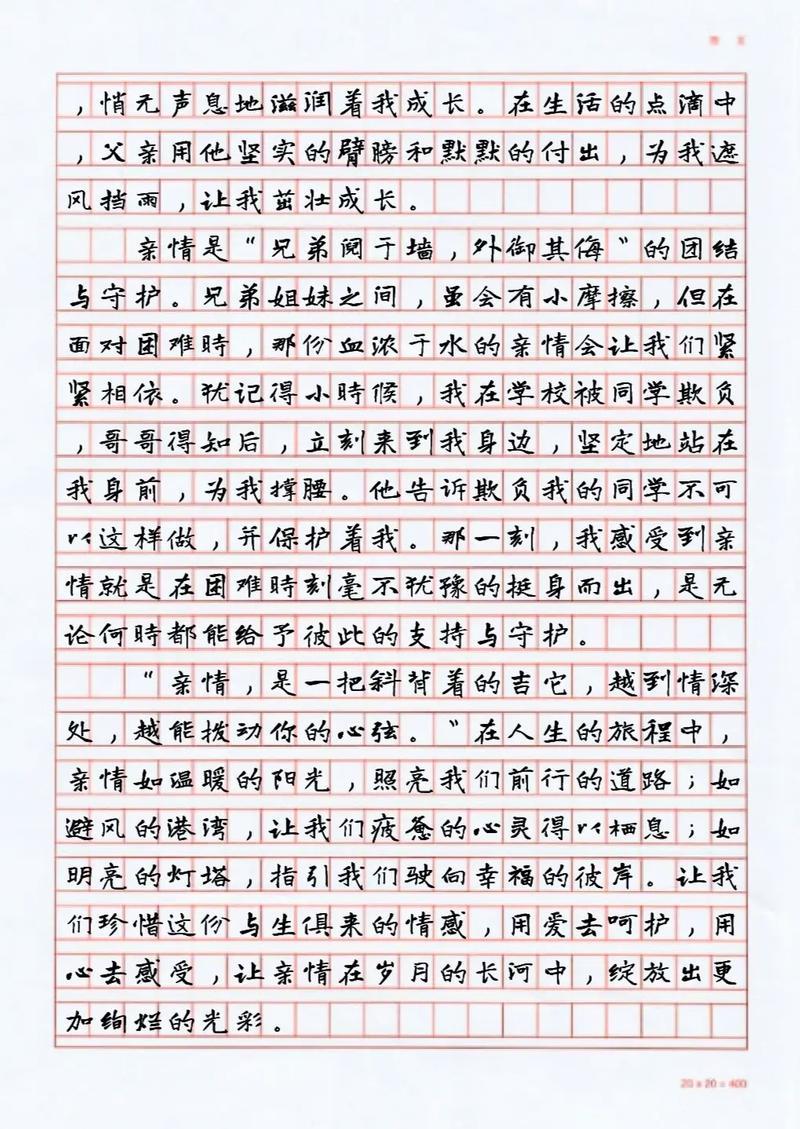 ，悄无声息地滋润着我成长。在生活的点滴中
，父亲用他坚实的臂膀和默默的付出，为我遮
风挡雨，让我茁壮成长。
亲情是“兄弟阋于墙，外御其侮”的团结
与守护。兄弟姐妹之间，虽会有小摩擦，但在
面对困难時，那份血浓于水的亲情会让我们紧
紧相依。犹记得小時候，我在学校被同学欺负
，哥哥得知后，立刻来到我身边，坚定地站在
我身前，为我撑腰。他告诉欺负我的同学不可
以这样做，并保护着我。那一刻，我感受到亲
情就是在困难時刻毫不犹豫的挺身而出，是无
论何時都能给予彼此的支持与守护。
“亲情，是一把斜背着的吉它，越到情深
处，越能拨动你的心弦。”在人生的旅程中，
亲情如温暖的阳光，照亮我们前行的道路；如
避风的港湾，让我们疲惫的心灵得以栖息；如
明亮的灯塔，指引我们驶向幸福的彼岸。让我
们珍惜这份与生俱来的情感，用爱去呵护，用
心去感受，让亲情在岁月的长河中，绽放出更
加绚烂的光彩。
20×20=400